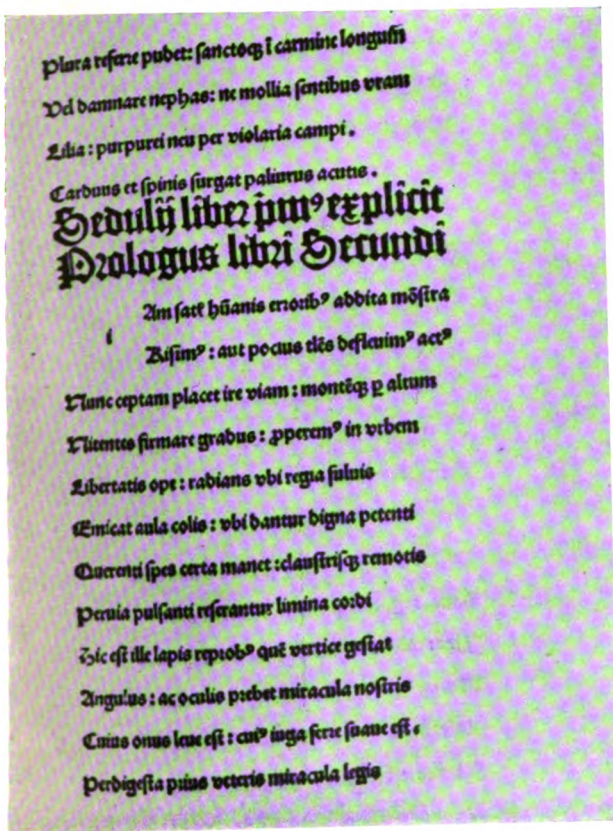 Plura referre pudet: sanctoqꝫ ī carmine longum̄
Vel damnare nephas: ne mollia sentibus vrans
Lilia : purpurei neu per violaria campi .
Carduus et spinis surgat paliurus acutis .
Sedulij liber pm⁹ explicit
Prologus libri Secundi
i
Am satē hūanis errorib⁹ addita mōstra
Risim⁹ : aut pocius tlēs defleuim⁹ act⁹
Nunc ceptam placet ire viam : montēqꝫ ꝑ altum
Nitentes firmare gradus : ꝓperem⁹ in vrbem
Libertatis ope : radians vbi regia fuluis
Emicat aula colis : vbi dantur digna petenti
Querenti spes certa manet : claustrisqꝫ remotis
Peruia pulsanti reserantur limina cordi
Hic est ille lapis reprob⁹ quē vertice gestat
Angulus : ac oculis prebet miracula nostris
Cuius onus leue est : cui⁹ iuga ferre suaue est .
Perdigesta prius veteris miracula legis